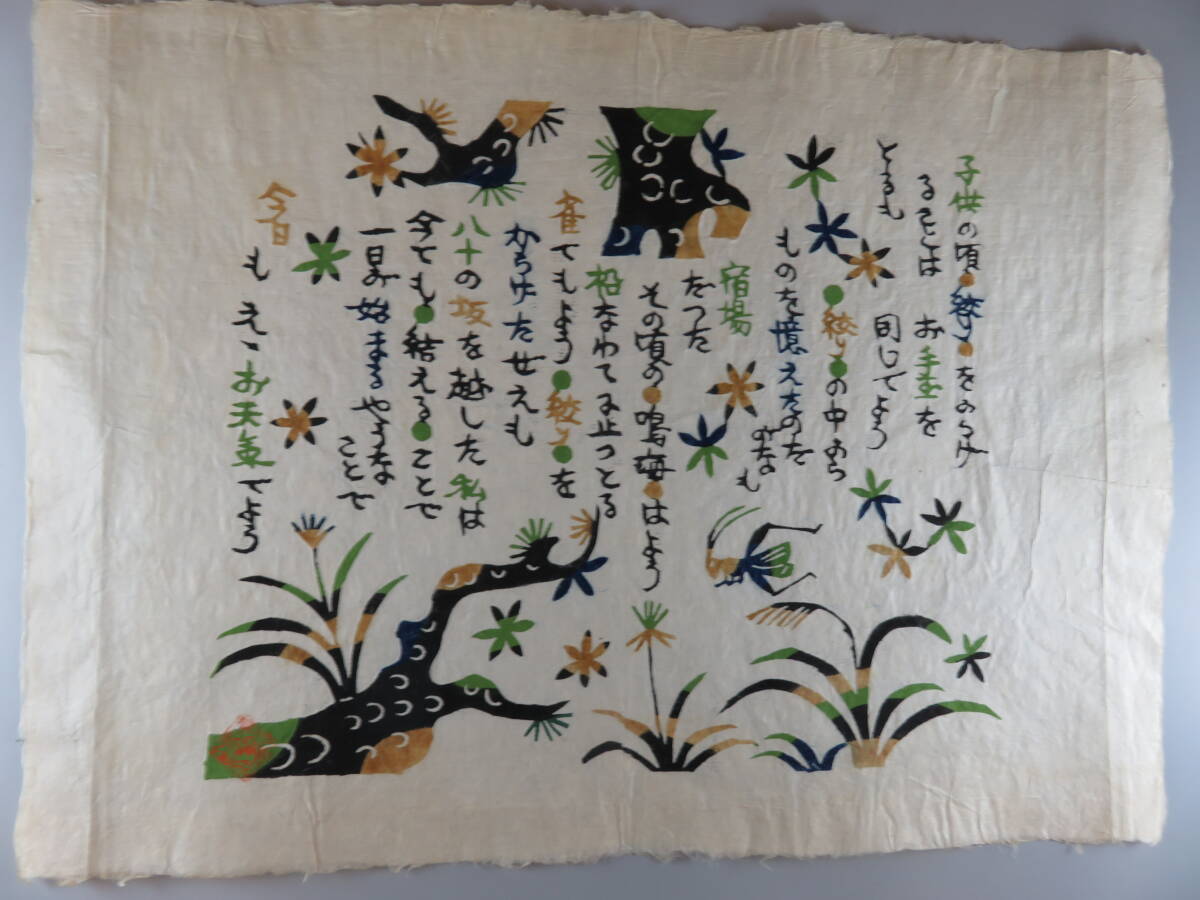 子供の頃●絞り●をくくけ
ることは お手玉を
とるも 同じでよう
●絞り●の中から
ものを憶えたのだ
がなも
宿場
だった
その頃の●鳴海●はよう
松なわて子止っとる
雀でもよう●絞り●を
からげたぜえも
八十の坂を越した私は
今でも●結える●ことで
一日が始まるやうな
ことで
今日
も えゝお天気でよう